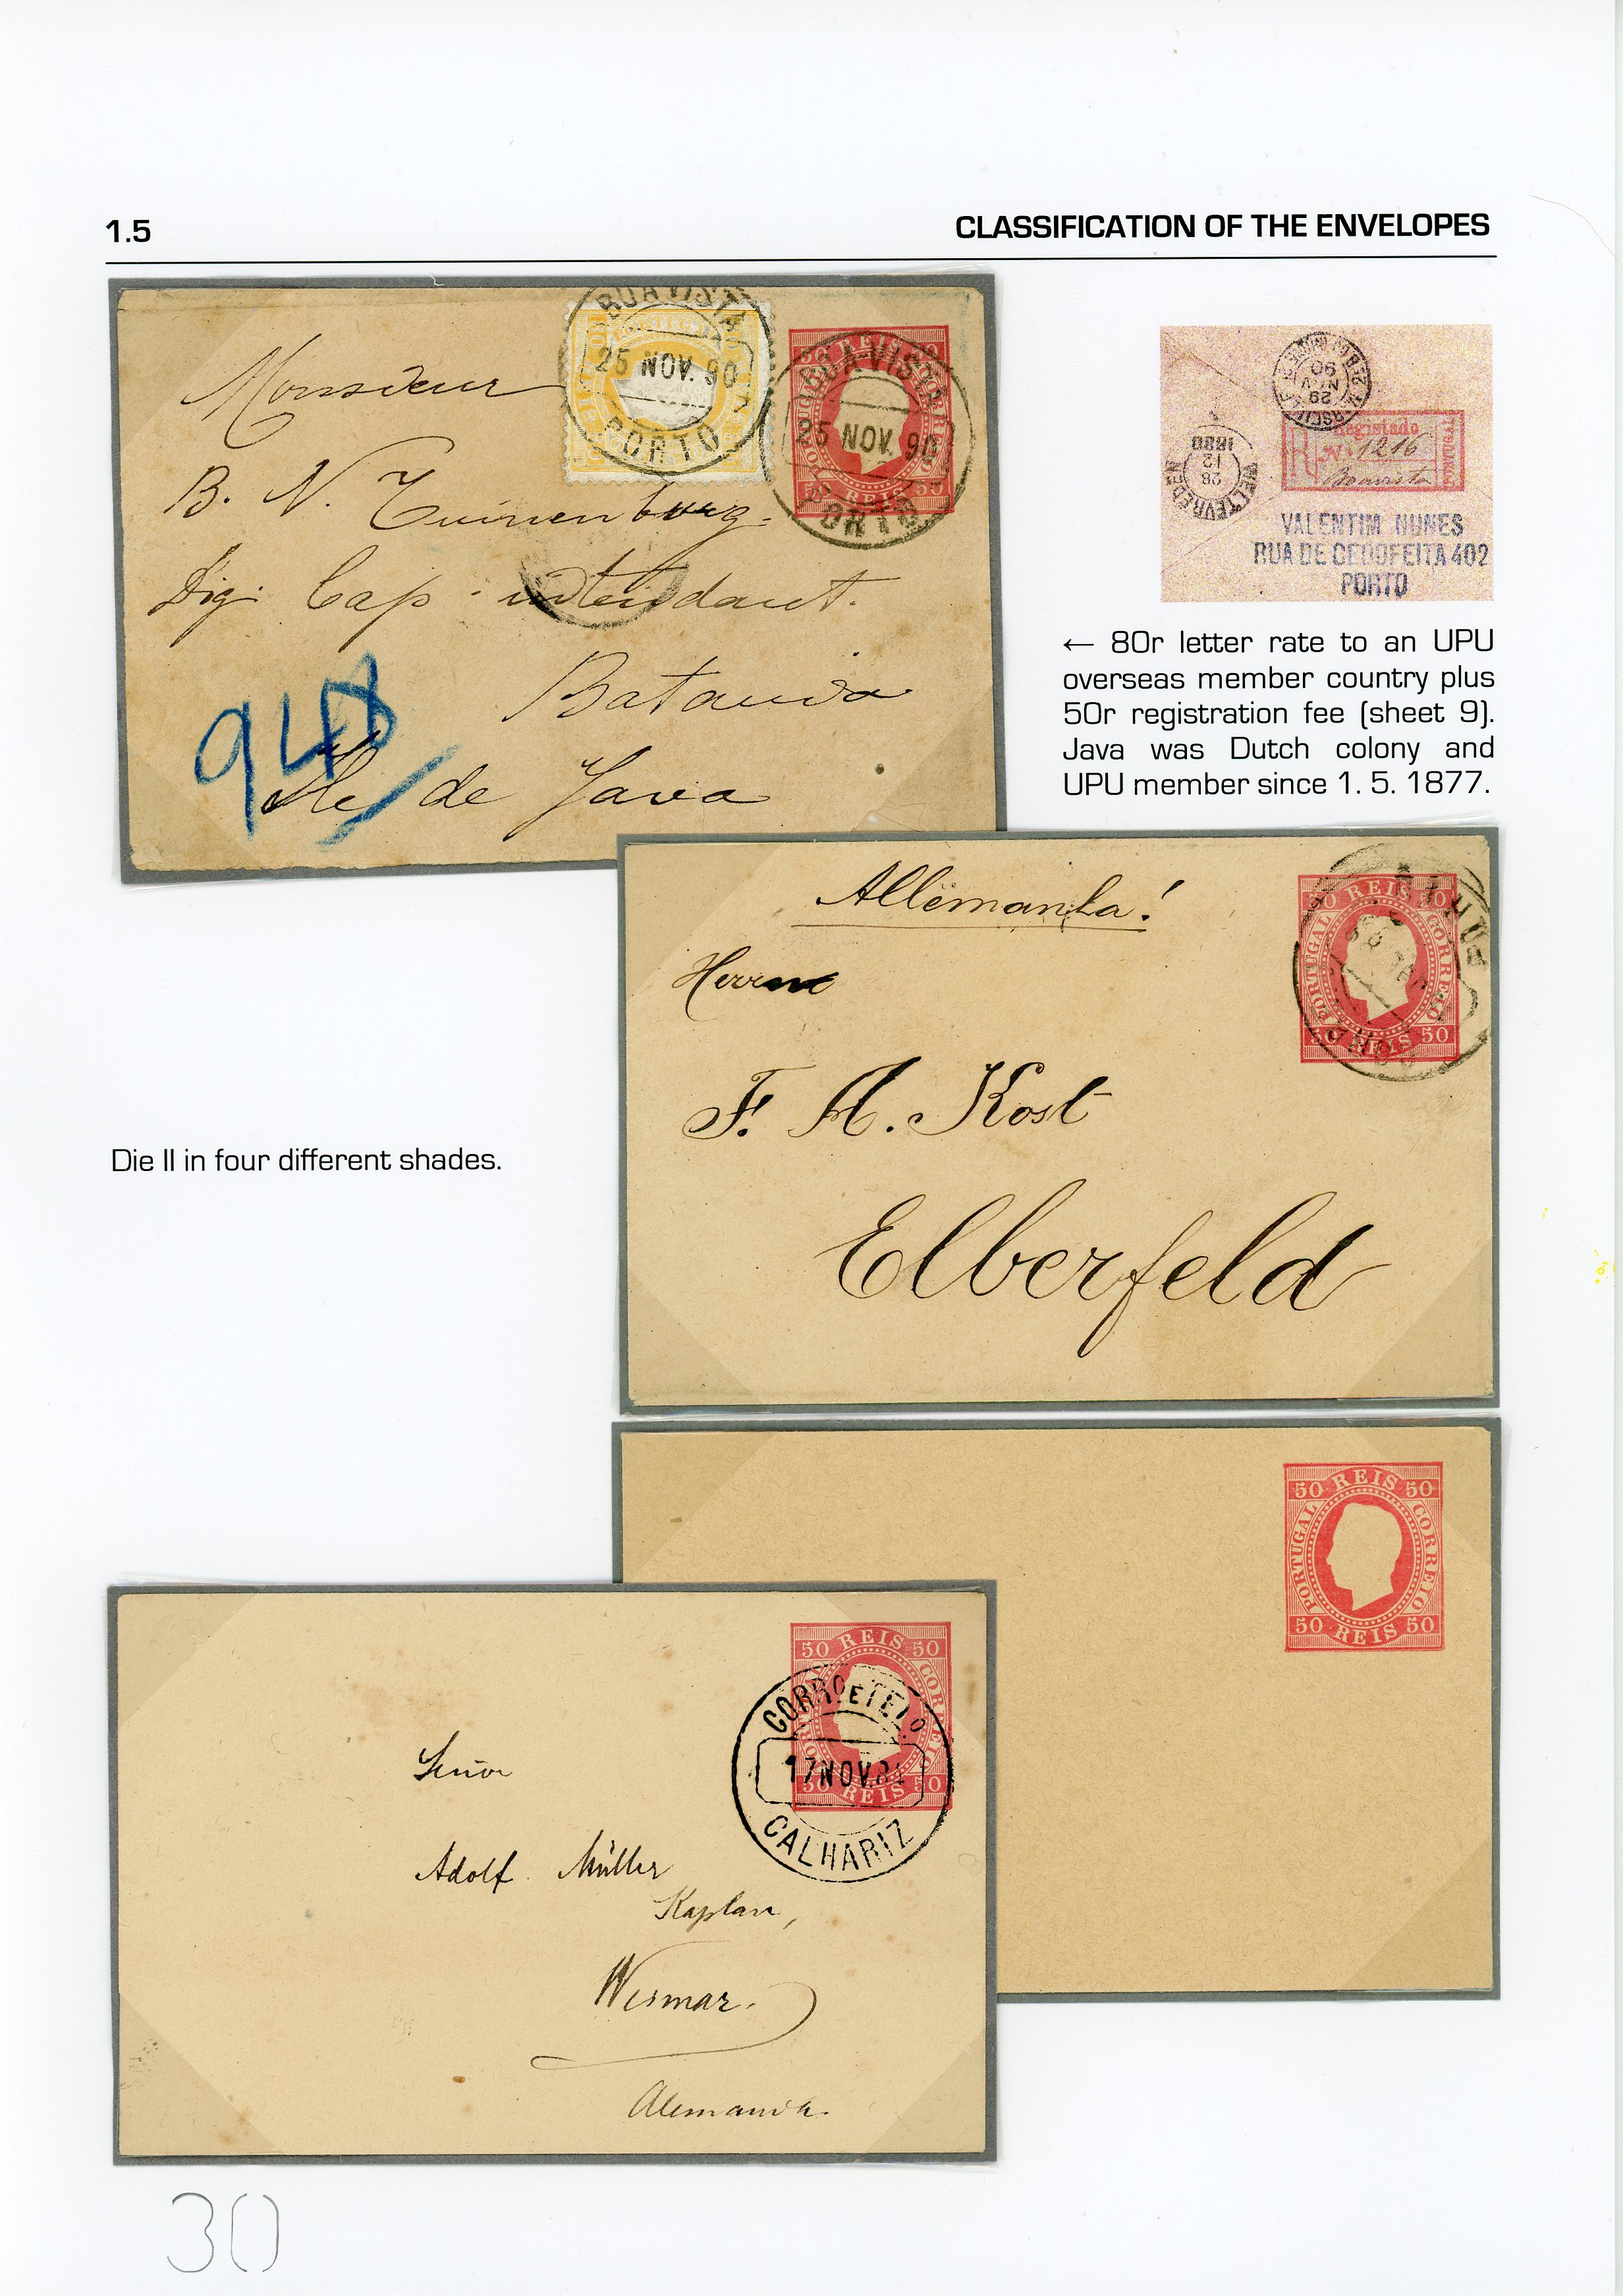 1.5
CLASSIFICATION OF THE ENVELOPES
Monsieur
B. N.
Cap. intendant.
Batavia
Ile de Java
948
BOAVISTA
25 NOV. 90
PORTO
50 REIS 50
CORREIO
50 REIS 50
25 NOV. 90
PORTO
29
NOV
90
WELTEVREDEN
28
12
1890
Registado
PORTUGAL
R No 1216
Boavista
VALENTIM NUNES
RUA DE CEDOFEITA 402
PORTO
← 80r letter rate to an UPU
overseas member country plus
50r registration fee (sheet 9).
Java was Dutch colony and
UPU member since 1. 5. 1877.
Allemanha!
Herrn
F. A. Kost
Elberfeld
50 REIS 50
PORTUGAL
CORREIO
50 REIS 50
Die II in four different shades.
50 REIS 50
PORTUGAL
CORREIO
50 REIS 50
50 REIS 50
CORREIO
50 REIS 50
CORRO E TELO
17 NOV.
CALHARIZ
Senor
Adolf Müller
Kaplan,
Wismar.
Alemania.
30